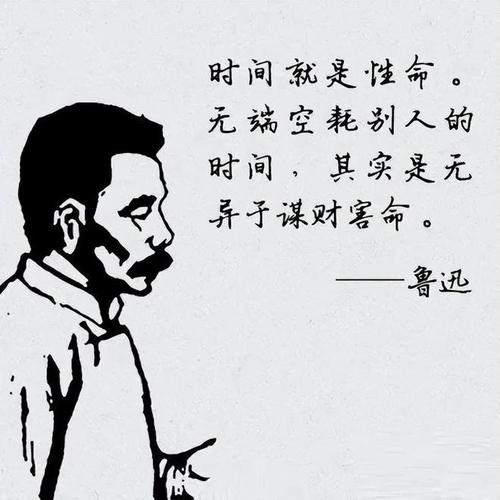 时间就是性命。
无端空耗别人的
时间，其实是无
异于谋财害命。
——鲁迅